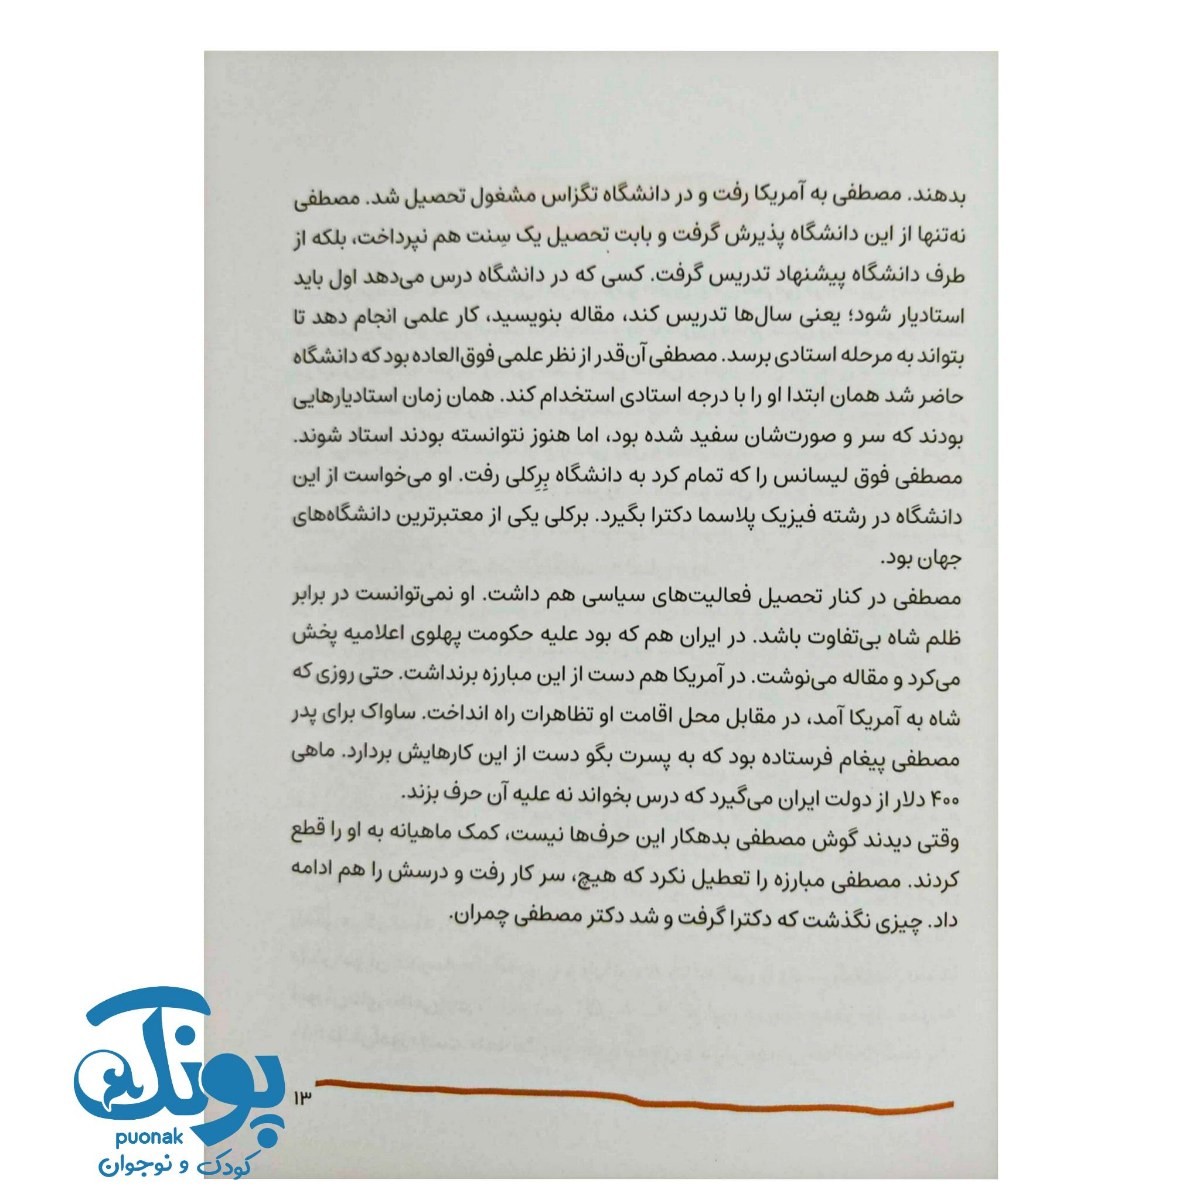 بدهند. مصطفی به آمریکا رفت و در دانشگاه تگزاس مشغول تحصیل شد. مصطفی
نه‌تنها از این دانشگاه پذیرش گرفت و بابت تحصیل یک سِنت هم نپرداخت، بلکه از
طرف دانشگاه پیشنهاد تدریس گرفت. کسی که در دانشگاه درس می‌دهد اول باید
استادیار شود؛ یعنی سال‌ها تدریس کند، مقاله بنویسید، کار علمی انجام دهد تا
بتواند به مرحله استادی برسد. مصطفی آن‌قدر از نظر علمی فوق‌العاده بود که دانشگاه
حاضر شد همان ابتدا او را با درجه استادی استخدام کند. همان زمان استادیارهایی
بودند که سر و صورت‌شان سفید شده بود، اما هنوز نتوانسته بودند استاد شوند.
مصطفی فوق لیسانس را که تمام کرد به دانشگاه بِرِکلی رفت. او می‌خواست از این
دانشگاه در رشته فیزیک پلاسما دکترا بگیرد. برکلی یکی از معتبرترین دانشگاه‌های
جهان بود.
مصطفی در کنار تحصیل فعالیت‌های سیاسی هم داشت. او نمی‌توانست در برابر
ظلم شاه بی‌تفاوت باشد. در ایران هم که بود علیه حکومت پهلوی اعلامیه پخش
می‌کرد و مقاله می‌نوشت. در آمریکا هم دست از این مبارزه برنداشت. حتی روزی که
شاه به آمریکا آمد، در مقابل محل اقامت او تظاهرات راه انداخت. ساواک برای پدر
مصطفی پیغام فرستاده بود که به پسرت بگو دست از این کارهایش بردارد. ماهی
۴۰۰ دلار از دولت ایران می‌گیرد که درس بخواند نه علیه آن حرف بزند.
وقتی دیدند گوش مصطفی بدهکار این حرف‌ها نیست، کمک ماهیانه به او را قطع
کردند. مصطفی مبارزه را تعطیل نکرد که هیچ، سر کار رفت و درسش را هم ادامه
داد. چیزی نگذشت که دکترا گرفت و شد دکتر مصطفی چمران.
۱۳
پونک
puonak
کودک و نوجوان